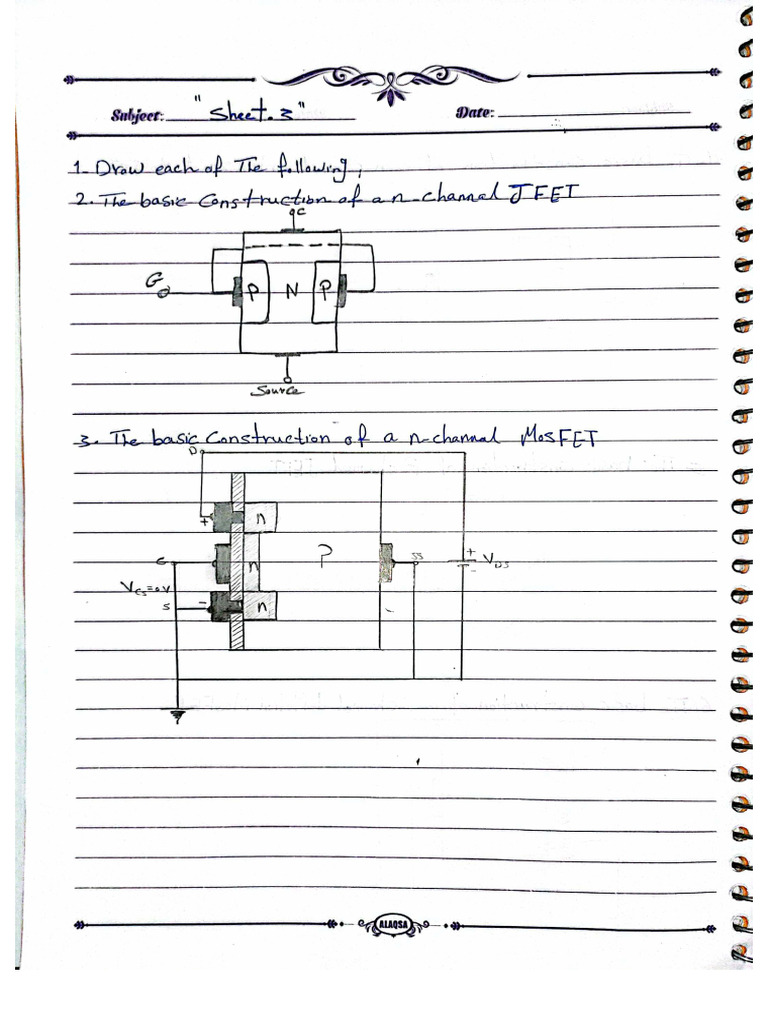 Subject: "Sheet.3" Date:
1. Draw each of The following,
2. The basic Construction of a n-channel JFET
G P N P
Source
3. The basic Construction of a n-channel MOSFET
D
+ n
P
G n SS + VDS
-
VGS=0V
S - n -
ALAQSA